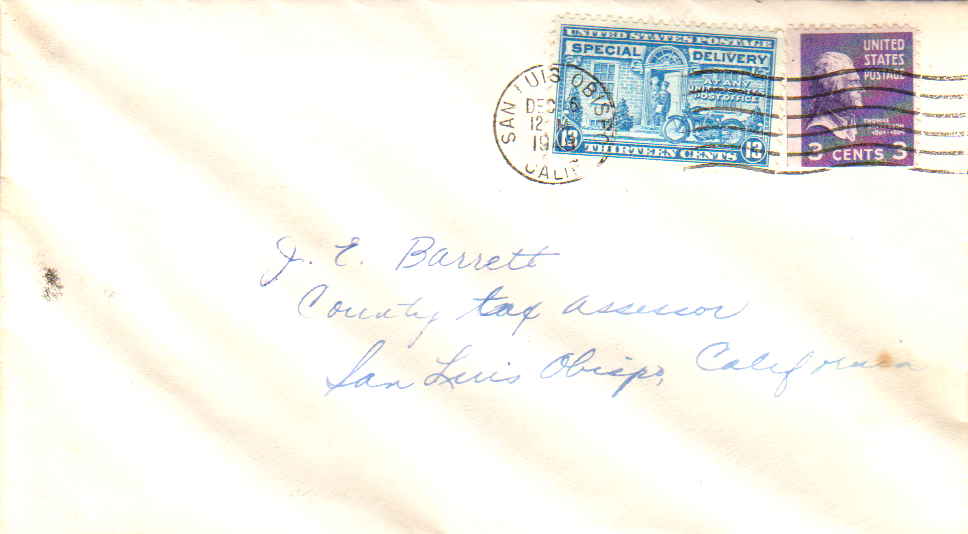 UNITED STATES POSTAGE
SPECIAL DELIVERY
AT ANY
UNITED STATES
POST OFFICE
13 THIRTEEN CENTS 13
UNITED
STATES
POSTAGE
THOMAS
JEFFERSON
3 CENTS 3
SAN LUIS OBISPO
DEC
12
19
CALIF
J. E. Barrett
County tax assessor
San Luis Obispo, California